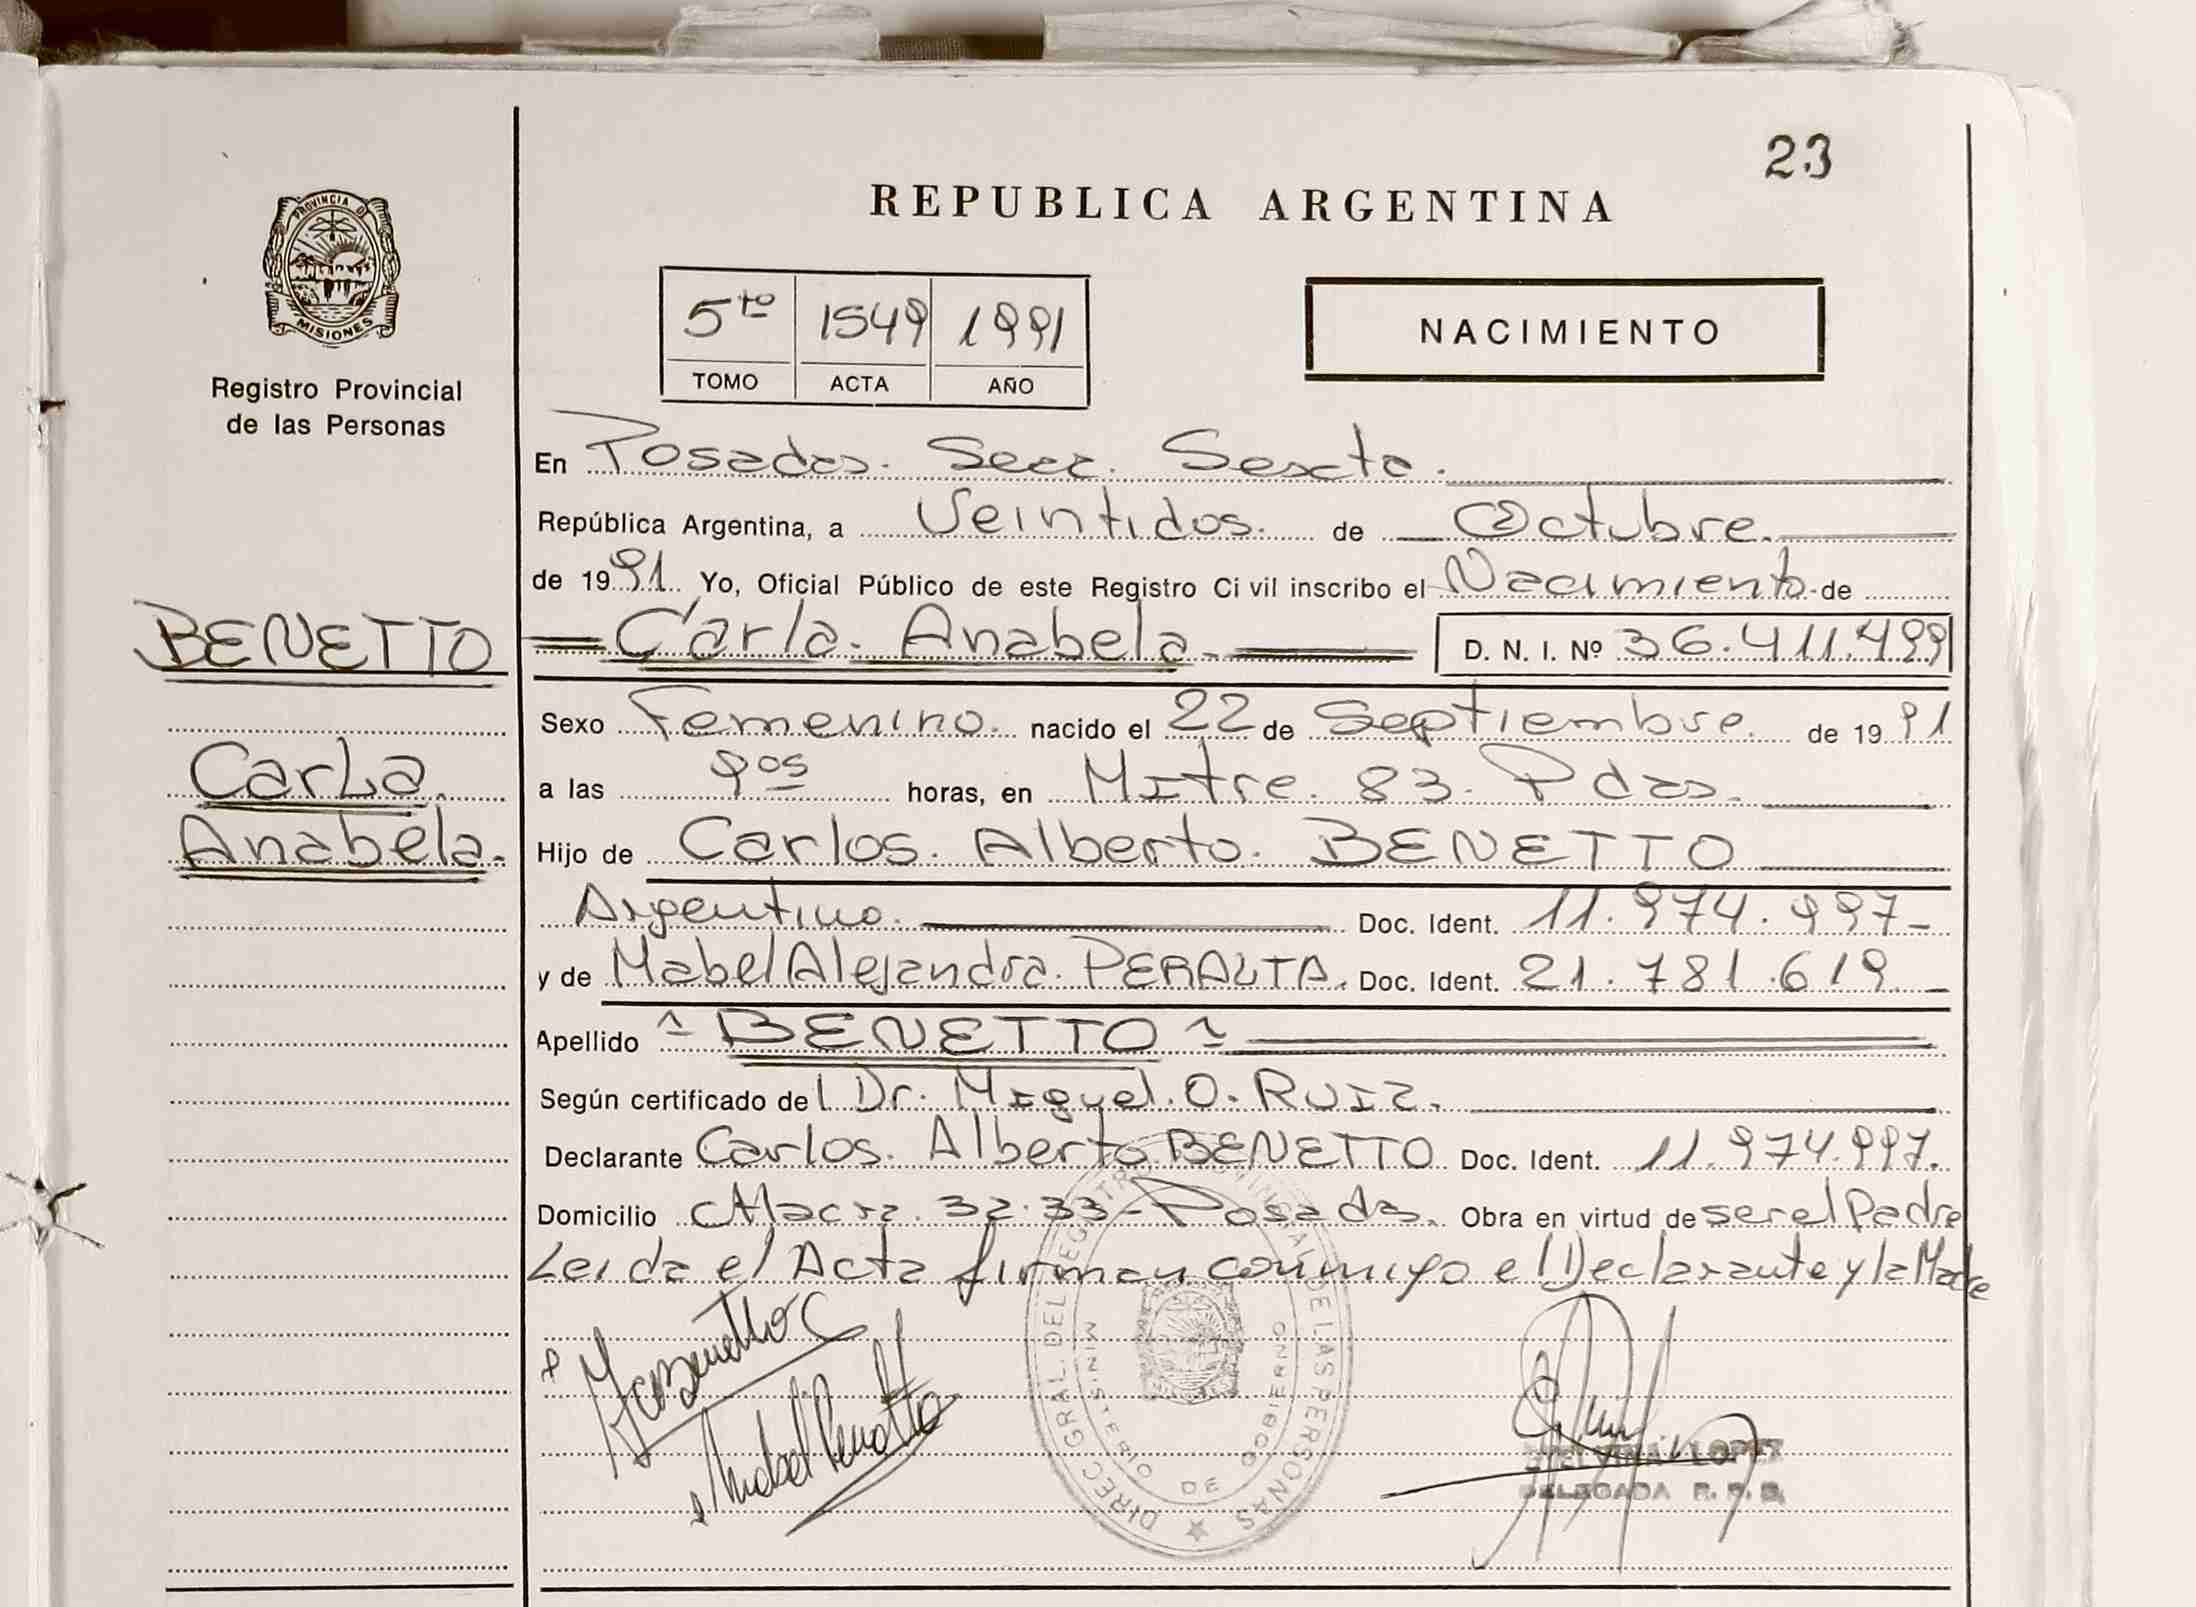 23
REPUBLICA ARGENTINA
PROVINCIA D
MISIONES
Registro Provincial
de las Personas
5to 1549 1991
TOMO ACTA AÑO
NACIMIENTO
En Posadas. Secc. Sexta.
República Argentina, a Veintidos. de Octubre.
de 1991. Yo, Oficial Público de este Registro Civil inscribo el Nacimiento de
BENETTO
Carla. Anabela. D. N. I. Nº 36.411.499
Sexo Femenino. nacido el 22 de Septiembre. de 1991
Carla.
Anabela.
a las 9os horas, en Mitre. 83. Pdas.
Hijo de Carlos. Alberto. BENETTO
Argentino. Doc. Ident. 11.974.997-
y de Mabel Alejandra. PERALTA. Doc. Ident. 21.781.619
Apellido BENETTO
Según certificado del Dr. Miguel. O. RUIZ.
Declarante Carlos. Alberto BENETTO Doc. Ident. 11.974.997.
Domicilio 32.33- Posadas. Obra en virtud de ser el Padre
Leida el Acta firman conmigo el Declarante y la Madre
DIREC. GRAL DEL REGISTRO DE LAS PERSONAS
MINISTERIO DE GOBIERNO
LOPEZ
DELEGADA